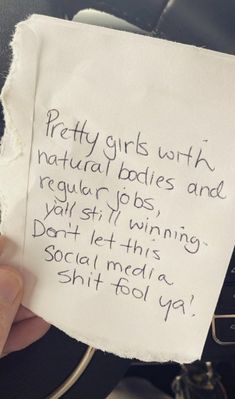 Pretty girls with
natural bodies and
regular jobs,
y'all still winning.
Don't let this
Social media
shit fool ya!